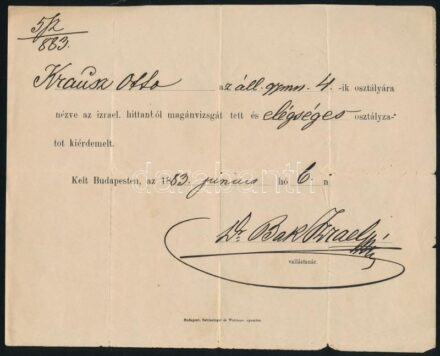 5/2
883.
Krausz Otto az áll. gymn. 4.-ik osztályára
nézve az izrael. hittanból magánvizsgát tett és elégséges osztályza-
tot kiérdemelt.
Kelt Budapesten, az 1883. junius hó 6.-n
Dr. Bak Izrael
vallástanár.
darabanth
Budapest,